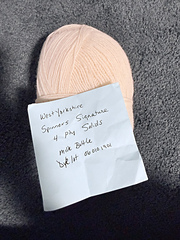 West Yorkshire
Spinners Signature
4 Ply Solids
Milk Bottle
Dye Lot